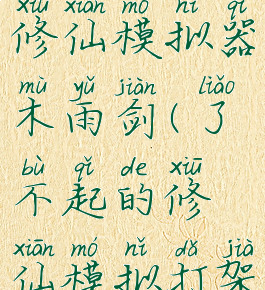 xiū xiān mó nǐ qì
修仙模拟器
mù yǔ jiàn liǎo
木雨剑(了
bù qǐ de xiū
不起的修
xiān mó nǐ dǎ jià
仙模拟打架